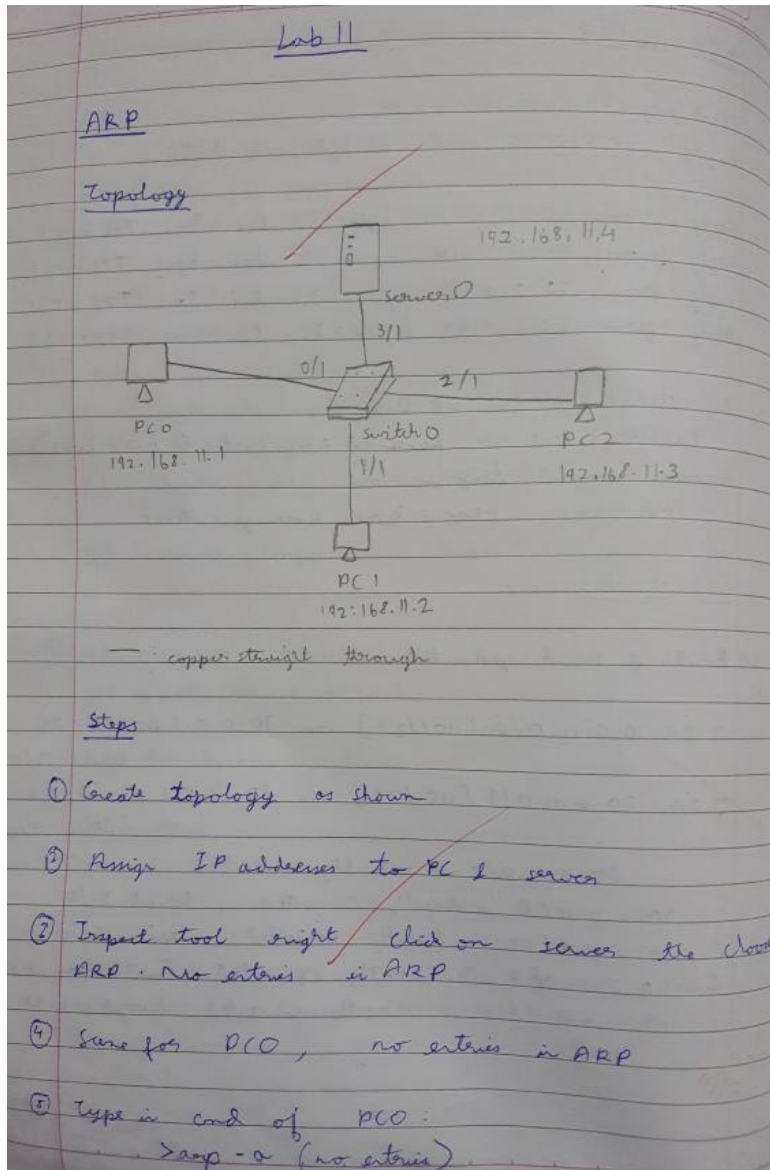 Lab 11
ARP
Topology
192.168.11.4
server0
3/1
0/1
2/1
PC0
switch0
PC2
192.168.11.1
1/1
192.168.11.3
PC1
192.168.11.2
— : copper straight through
Steps
① Create topology as shown
② Assign IP addresses to PC & server
③ Inspect tool right click on server the
ARP. No entries in ARP
④ Same for PC0, no entries in ARP
⑤ Type in cmd of PC0:
>arp -a (no entries)